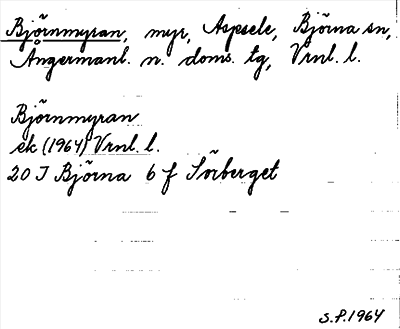 Björnmyran, myr, Aspsele, Björna sn,
Ångermanl. n. doms. tg, Vrnl. l.
Björnmyran
ek (1964) Vrnl. l.
20 I Björna 6 f Sörberget
S.P. 1964